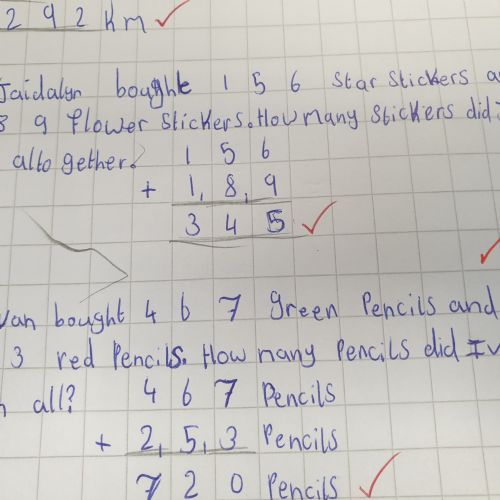 292 Km
Jaidalyn bought 156 star stickers
9 flower stickers. How many stickers did
alto gether.
156
+ 1,8,9
345
bought 467 green Pencils and
3 red Pencils. How many Pencils did Iv
all?
467 Pencils
+ 2,5,3 Pencils
720 Pencils